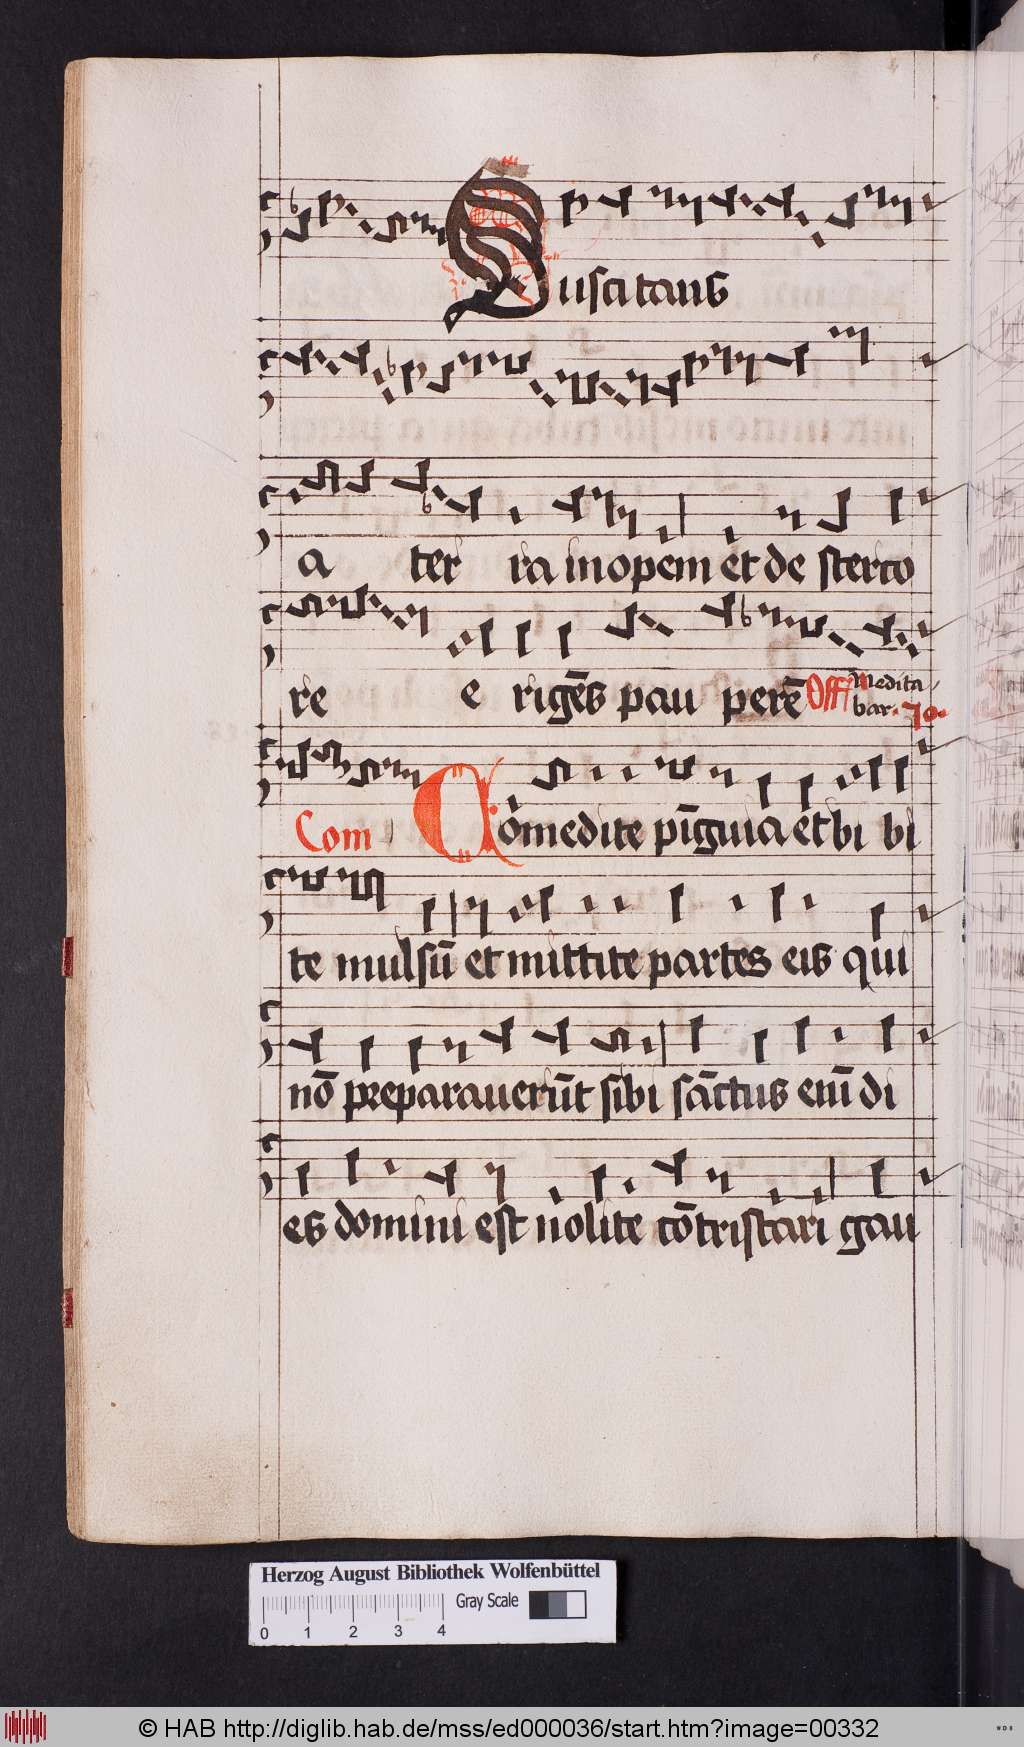 Suscitans
a ter ra inopem et de sterco
re e rigēs pau perē Off Medita
bar. 70.
Com Cōmedite pīguia et bi bi
te mulsū et mittite partes eis qui
nō preparauerūt sibi sāctus enī di
es domini est nolite cōtristari gau
Herzog August Bibliothek Wolfenbüttel
Gray Scale
0 1 2 3 4
© HAB http://diglib.hab.de/mss/ed000036/start.htm?image=00332